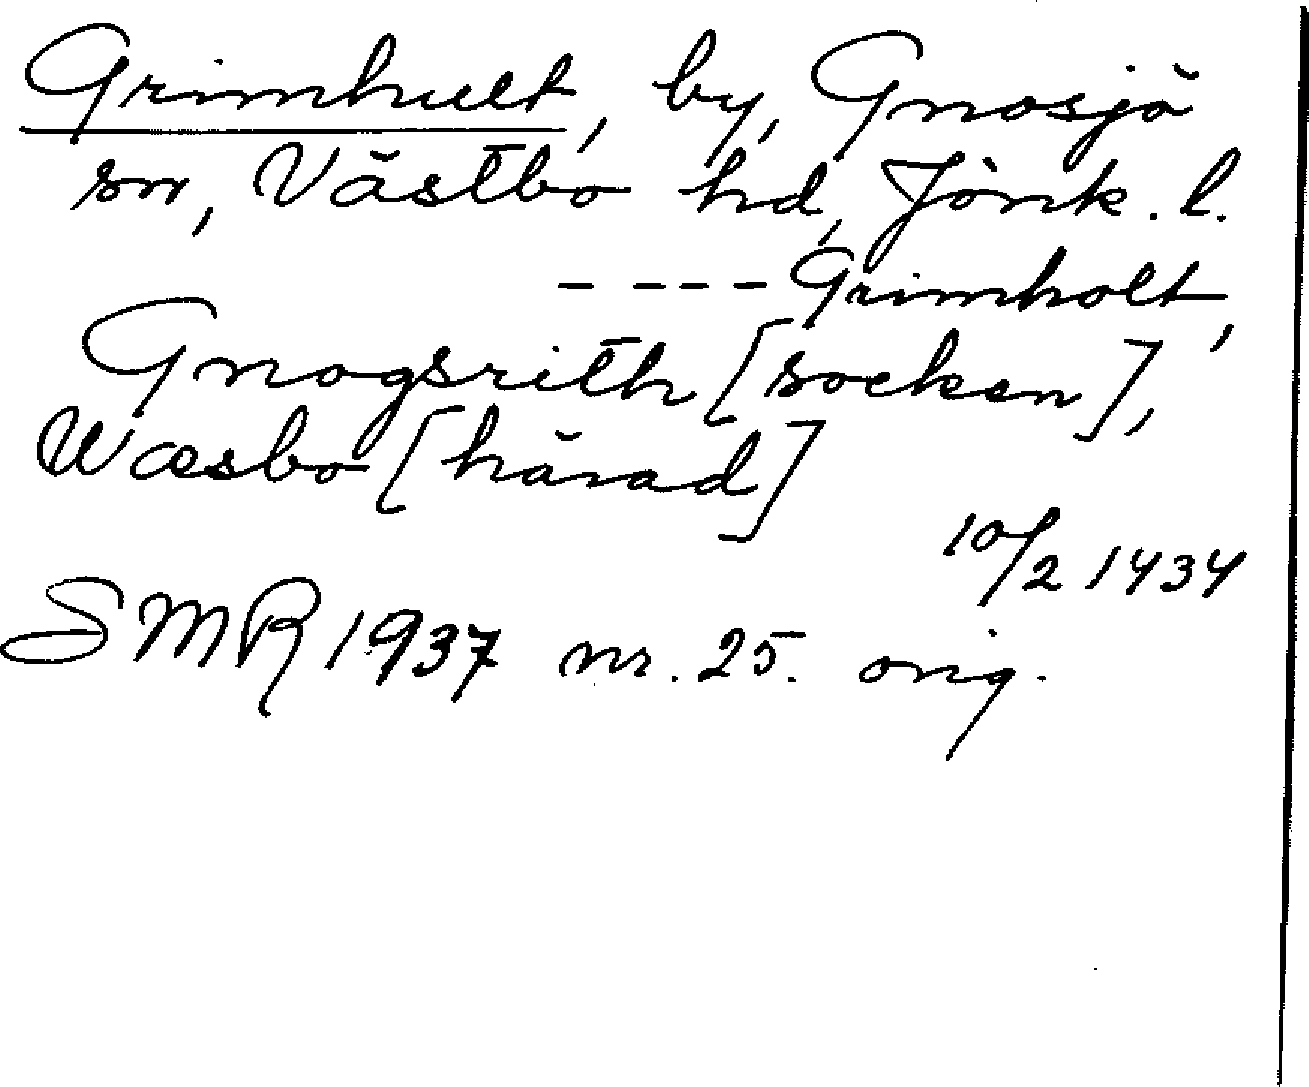 Grimhult, by, Gnosjö
sn, Västbo hd, Jönk. l.
- - - - Grimholt,
Gnogsrith [socken],
Wæsbo [härad]
10/2 1434
SMR 1937 nr. 25. orig.